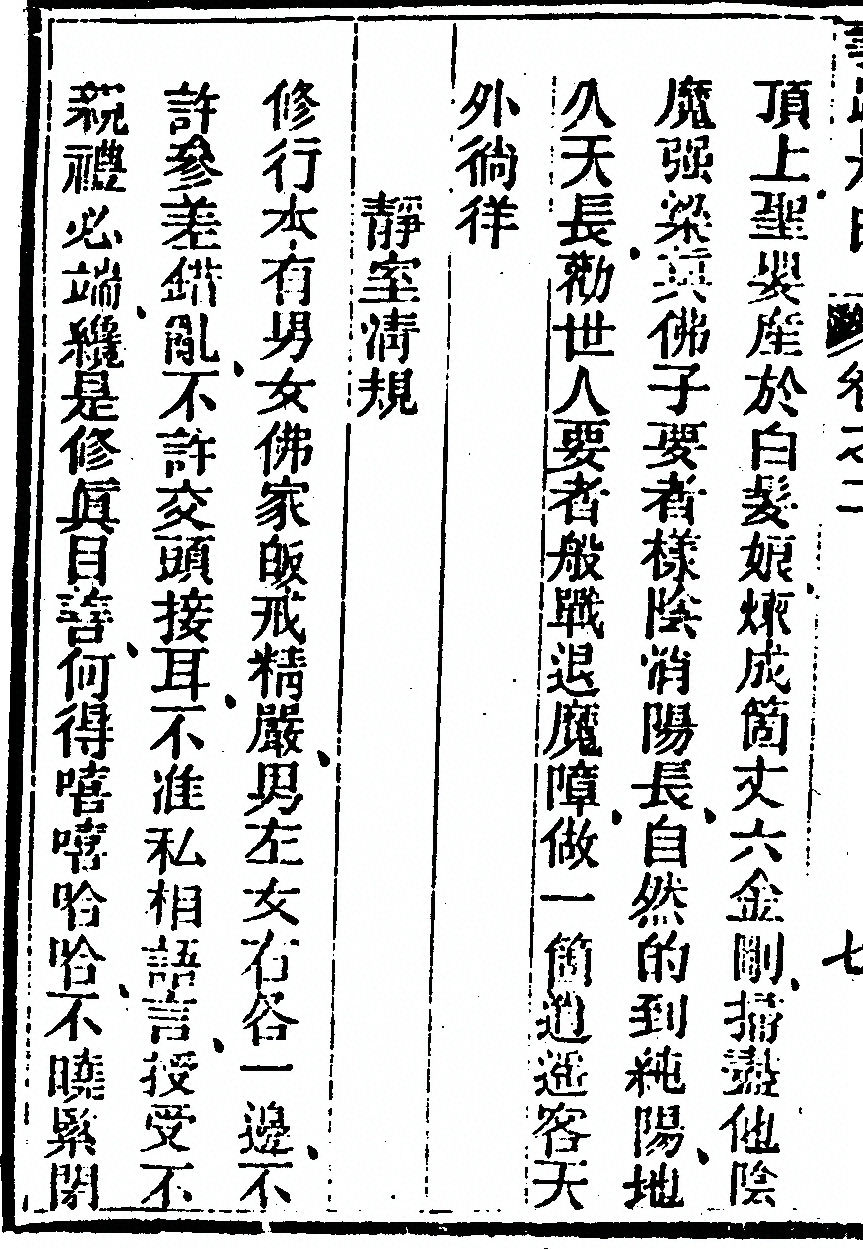 卷之二 七
頂上聖嬰産於白髮娘煉成箇丈六金剛掃盡他陰
魔强梁眞佛子要者樣陰消陽長自然的到純陽地
久天長勸世人要者般戰退魔障做一箇逍遥客天
外徜徉
靜室清規
修行本有男女佛家皈戒精嚴男左女右各一邊不
許參差錯亂不許交頭接耳不准私相語言授受不
親禮必端纔是修眞目善何得嘻嘻哈哈不曉緊閉